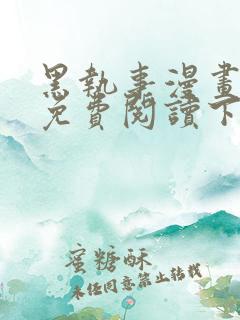 黑執事漫畫
免費閱讀下
蜜糖酥
未经同意禁止转载